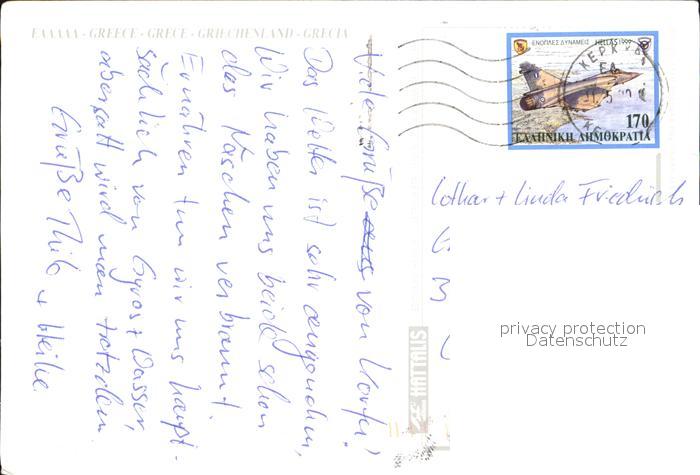 ΕΛΛΑΔΑ - GREECE - GRECE - GRIECHENLAND - GRECIA
Viele Grüße aus von Korfu!
Das Wetter ist sehr angenehm,
Wir haben uns beide schon
das Näschen verbrannt.
Ernähren tun wir uns haupt-
sächlich von Gyros + Wasser,
aber satt wird man trotzdem.
Grüße Thilo + Heike
ΕΝΟΠΛΕΣ ΔΥΝΑΜΕΙΣ HELLAS 1999
170
ΕΛΛΗΝΙΚΗ ΔΗΜΟΚΡΑΤΙΑ
ΚΕΡΚΥΡΑ
Lothar + Linda Friedrich
G
M
privacy protection
Datenschutz
HAITALIS